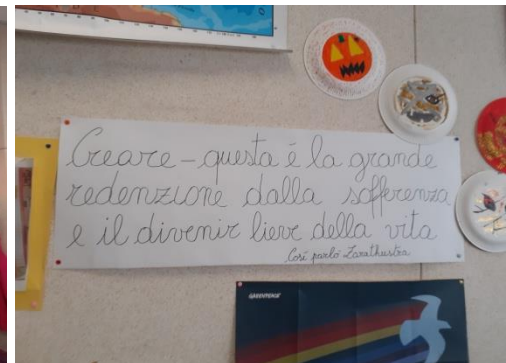 Creare – questa è la grande
redenzione dalla sofferenza
e il divenir lieve della vita
Così parlò Zarathustra
GREENPEACE